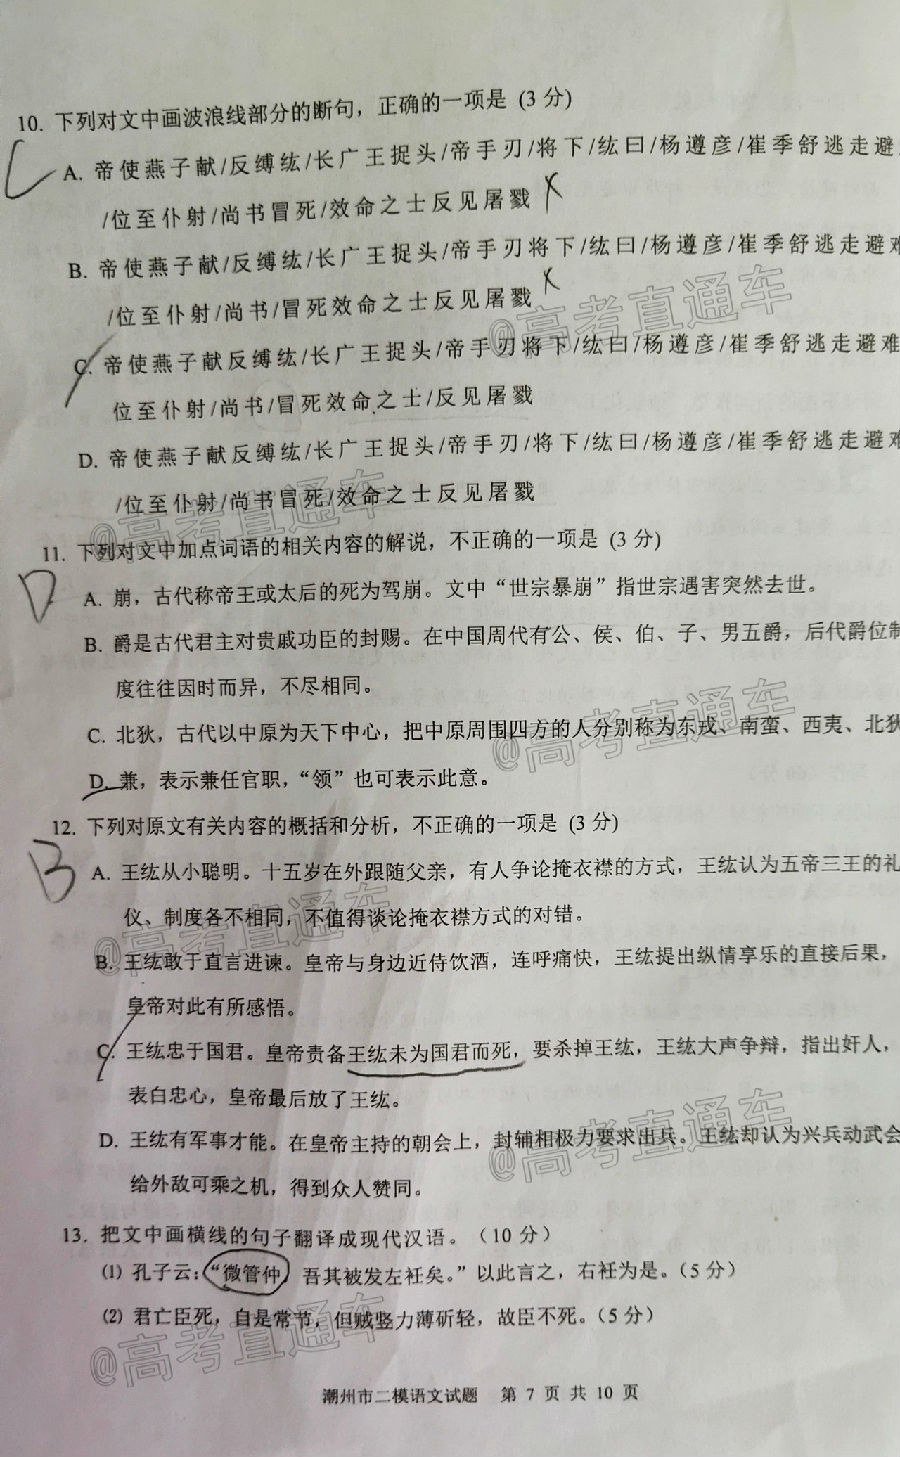 10. 下列对文中画波浪线部分的断句，正确的一项是 (3 分)
A. 帝使燕子献/反缚纮/长广王捉头/帝手刃/将下/纮曰/杨遵彦/崔季舒逃走避
/位至仆射/尚书冒死/效命之士反见屠戮
B. 帝使燕子献/反缚纮/长广王捉头/帝手刃将下/纮曰/杨遵彦/崔季舒逃走避难
/位至仆射/尚书/冒死效命之士反见屠戮
C. 帝使燕子献反缚纮/长广王捉头/帝手刃将下/纮曰/杨遵彦/崔季舒逃走避难
位至仆射/尚书/冒死效命之士/反见屠戮
D. 帝使燕子献反缚纮/长广王捉头/帝手刃/将下/纮曰/杨遵彦/崔季舒逃走避难
/位至仆射/尚书冒死/效命之士反见屠戮
11. 下列对文中加点词语的相关内容的解说，不正确的一项是 (3 分)
D
A. 崩，古代称帝王或太后的死为驾崩。文中“世宗暴崩”指世宗遇害突然去世。
B. 爵是古代君主对贵戚功臣的封赐。在中国周代有公、侯、伯、子、男五爵，后代爵位制
度往往因时而异，不尽相同。
C. 北狄，古代以中原为天下中心，把中原周围四方的人分别称为东戎、南蛮、西夷、北狄
D. 兼，表示兼任官职，“领”也可表示此意。
12. 下列对原文有关内容的概括和分析，不正确的一项是 (3 分)
B
A. 王纮从小聪明。十五岁在外跟随父亲，有人争论掩衣襟的方式，王纮认为五帝三王的礼
仪、制度各不相同，不值得谈论掩衣襟方式的对错。
B. 王纮敢于直言进谏。皇帝与身边近侍饮酒，连呼痛快，王纮提出纵情享乐的直接后果，
皇帝对此有所感悟。
C. 王纮忠于国君。皇帝责备王纮未为国君而死，要杀掉王纮，王纮大声争辩，指出奸人，
表白忠心，皇帝最后放了王纮。
D. 王纮有军事才能。在皇帝主持的朝会上，封辅相极力要求出兵。王纮却认为兴兵动武会
给外敌可乘之机，得到众人赞同。
13. 把文中画横线的句子翻译成现代汉语。（10 分）
⑴ 孔子云：“微管仲，吾其被发左衽矣。”以此言之，右衽为是。（5 分）
⑵ 君亡臣死，自是常节，但贼竖力薄斫轻，故臣不死。（5 分）
潮州市二模语文试题 第 7 页 共 10 页
@高考直通车
@高考直通车
@高考直通车
@高考直通车
@高考直通车
@高考直通车